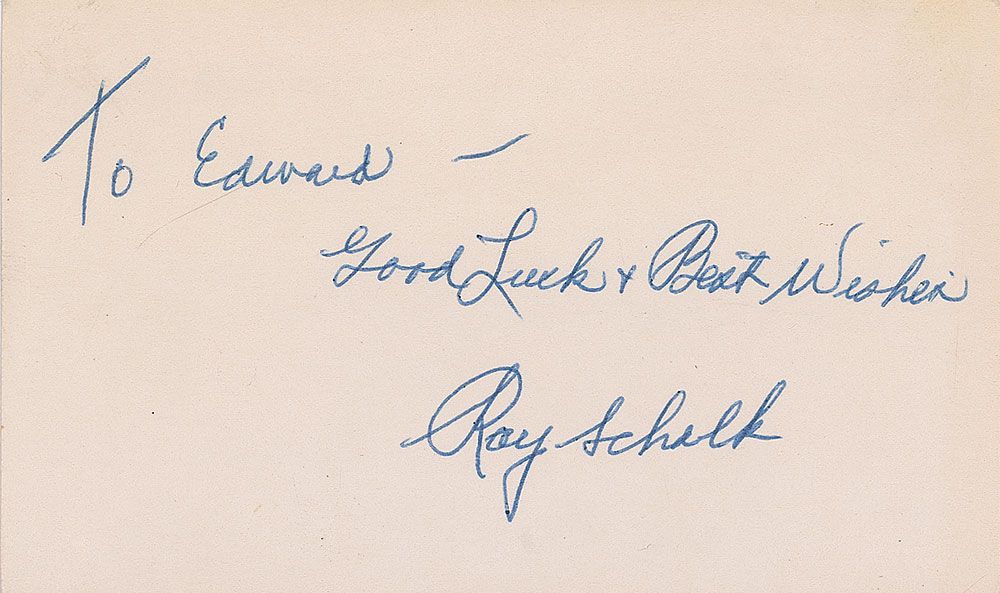 To Edward —
Good Luck & Best Wishes
Roy Schalk